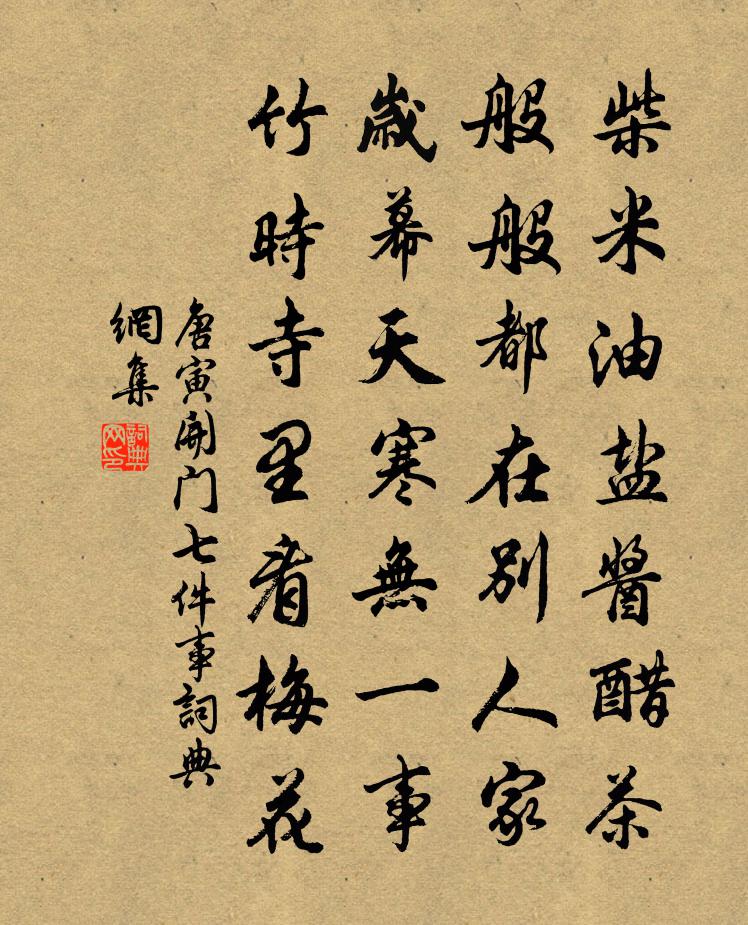 柴米油盐醬醋茶
般般都在别人家
歲幕天寒無一事
竹時寺里看梅花
唐寅開门七件事詞典
網集
詞典
网印